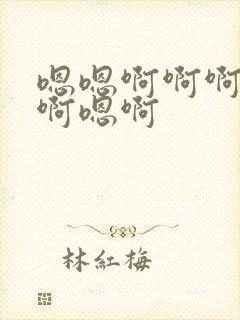 嗯嗯啊啊啊
啊嗯啊
林紅梅